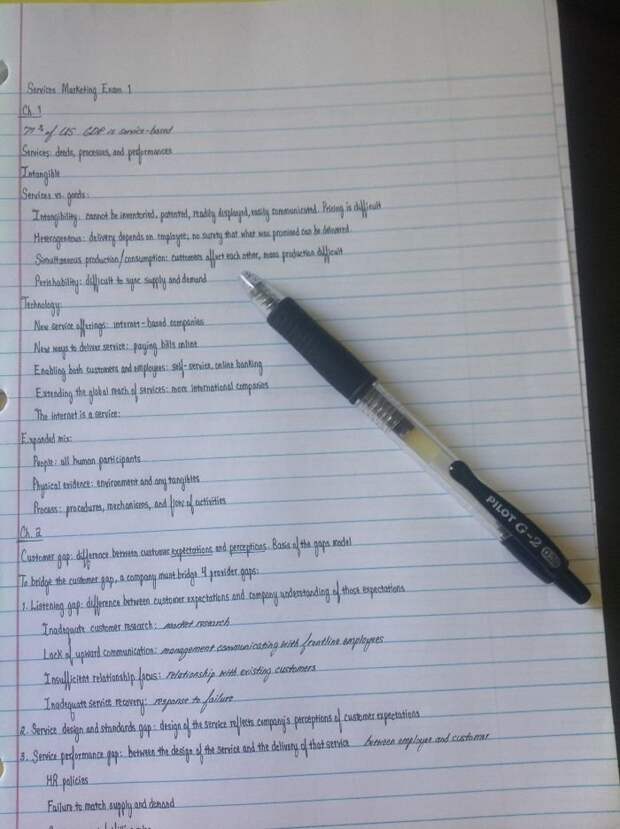 Services Marketing Exam 1
Ch. 1
of US GDP is service-based
Services: deeds, processes, and performances
Intangible
Services vs. goods:
Intangibility: cannot be inventoried, patented, readily displayed, easily communicated. Pricing is difficult
Heterogenous: delivery depends on employee, no surety that what was promised can be delivered
Simultaneous production/consumption: customers affect each other, mass production difficult
Perishability: difficult to sync supply and demand
Technology:
New service offerings: internet-based companies
New ways to deliver service: paying bills online
Enabling both customers and employees: self-service, online banking
Extending the global reach of services: more international companies
The internet is a service:
Expanded mix:
People: all human participants
Physical evidence: environment and any tangibles
Process: procedures, mechanisms, and flow of activities
Ch. 2
Customer gap: difference between customer expectations and perceptions. Basis of the gaps model
To bridge the customer gap, a company must bridge 4 provider gaps:
1. Listening gap: difference between customer expectations and company understanding of those expectations
Inadequate customer research: market research
Lack of upward communication: management communicating with frontline employees
Insufficient relationship focus: relationship with existing customers
Inadequate service recovery: response to failure
2. Service design and standards gap: design of the service reflects company's perceptions of customer expectations
3. Service performance gap: between the design of the service and the delivery of that service between employee and customer
HR policies
Failure to match supply and demand
PILOT G-2